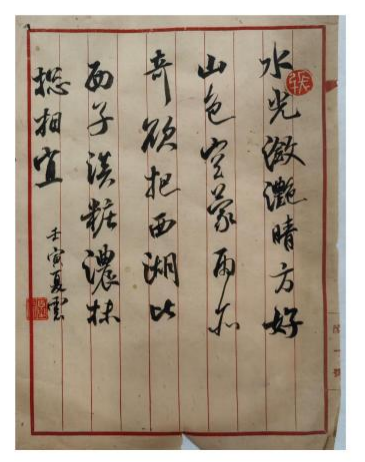 水光潋灧晴方好
山色空蒙雨亦
奇欲把西湖比
西子淡粧濃抹
總相宜
壬寅夏雲